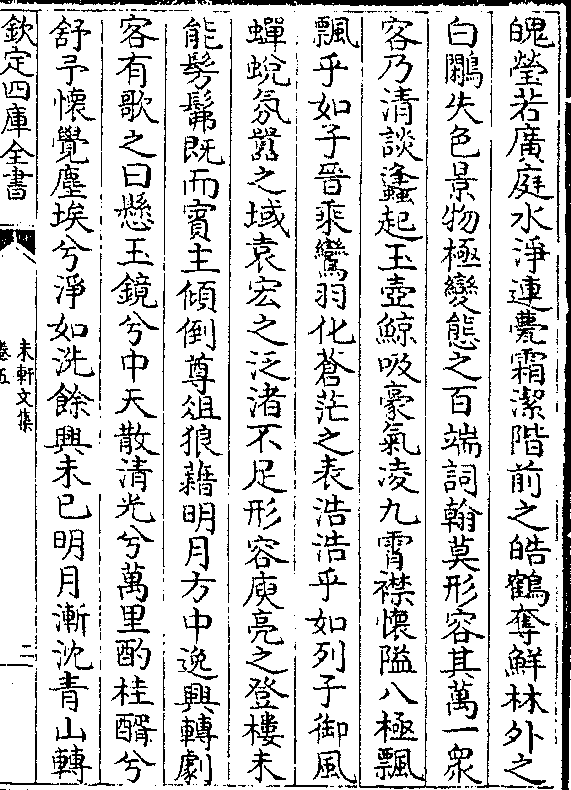 魄瑩若廣庭水淨連甍霜潔階前之皓鶴奪鮮林外之
白鷴失色景物極變態之百端詞翰莫形容其萬一衆
客乃清談蠭起玉壺鯨吸豪氣凌九霄襟懐隘八極飄
飄乎如子晉乘鸞羽化蒼茫之表浩浩乎如列子御風
蟬蛻氛嚣之域袁宏之泛渚不足形容庾亮之登樓未
能髣髴既而賓主傾倒尊俎狼藉明月方中逸興轉劇
客有歌之曰懸玉鏡兮中天散清光兮萬里酌桂醑兮
舒予懐覺塵埃兮淨如洗餘興未已明月漸沈青山轉
欽定四庫全書
未軒文集
卷五
二